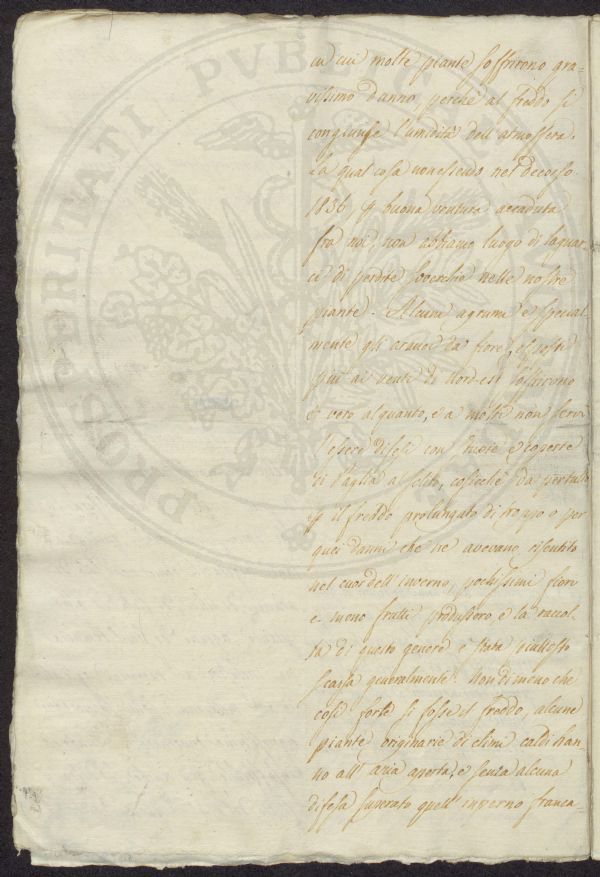 in cui molte piante soffrirono gra-
vissimo danno, perchè al freddo si
congiunse l'umidità dell'atmosfera.
La qual cosa non essendo nel decorso
1836 p buona ventura accaduta
fra noi, non abbiamo luogo di lagnar-
ci di perdite soverchie nelle nostre
piante. Alcuni agrumi e special-
mente gli aranci da fiore, esposti
più ai venti di Nord-est soffrirono
è vero alquanto, e a molti non servì
l'essere difesi con stuoie e coperte
di paglia al solito, cosicchè da per tutto
p il freddo prolungato di troppo o per
quei danni che ne avevano risentito
nel cuor dell'inverno, pochissimi fiori
e meno frutti produssero e la raccol-
ta di questo genere è stata piuttosto
scarsa generalmente. Non di meno che
così forte si fosse il freddo, alcune
piante originarie di climi caldi han-
no all'aria aperta, e senza alcuna
difesa superato quell'inverno franca-
PRIVATI PVBLIC